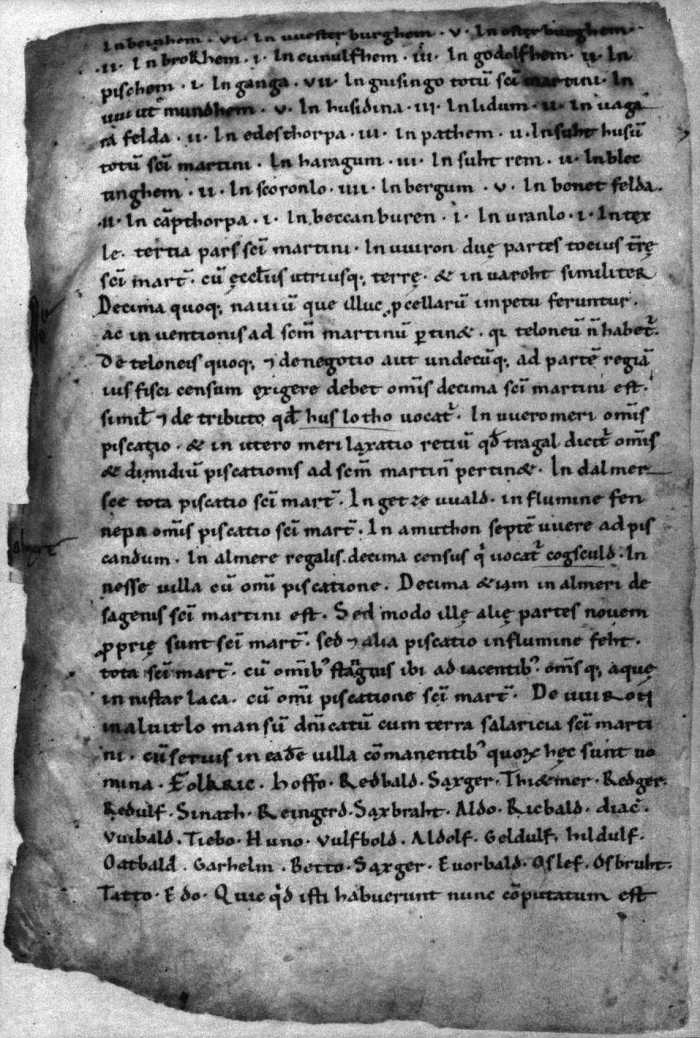 In beinhem · vi · In uuester burghem · v · In oster burghem ·
· ii · In brokhem · i · In eunulfhem · iii · In godolfhem · ii · In
pischem · i · In ganga · vii · In gisingo totū sci martini · In
mundhem · v · In husidina · iii · In lidum · ii · In uaga
rā felda · ii · In edesthorpa · iii · In pathem · ii · In suht husū
totū sci martini · In haragum · iii · In suht rem · ii · In blec
tinghem · ii · In scoronlo · iiii · In bergum · v · In bonet felda ·
· ii · In cāpthorpa · i · In beccan buren · i · In uranlo · i · In tex
le · tertia pars sci martini · In uuiron duę partes tocius tr̄ę
sci mart̄ · cū ęcclis utriusq; terrę · & in uaroht similiter
Decima quoq; nauiū que illuc ꝓcellarū impetu feruntur ·
ac inuentionis ad scm̄ martinū ꝑtin& · qi teloneū n̄ habet̄ ·
De teloneis quoq; ⁊ de negotio aut undecūq; ad partē regiā
ius fisci censum exigere debet omīs decima sci martini est ·
simil̄ ⁊ de tributo qd̄ huslotho uocat̄ · In uueromeri omīs
piscatio · & in utero meri laxatio retiū qd̄ tragal dicit̄ omīs
& dimidiū piscationis ad scm̄ martin̄ pertin& · In dalmer
see tota piscatio sci mart̄ · In getzeuuald · in flumine fen
nepa omīs piscatio sci mart̄ · In amuthon septē uuere ad pis
candum · In almere regalis decima census q̄ uocat̄ cogsculd · In
nesse uilla cū omī piscatione · Decima &iam in almeri de
sagenis sci martini est · Sed modo illę alię partes nouem
ꝓprię sunt sci mart̄ · sed ⁊ alia piscatio in flumine feht ·
tota sci mart̄ · cū omīb; stagnis ibi adiacentib; omīsq; aque
in nistarlaca · cū omī piscatione sci mart̄ · De
maluitlo mansū dn̄icatū cum terra salaricia sci marti
ni · cū seruis in eadē uilla cōmanentib; quoꝝ hęc sunt no
mina · Folkric · Hoffo · Redbald · Saxger · Thi&mer · Redger ·
Redulf · Sinath · Reingerd · Saxbraht · Aldo · Ricbald · diac̄ ·
Vuibald · Tiebo · Huno · Vulfbold · Aldolf · Geldulf · hildulf ·
Oatbald · Garhelm · Betto · Saxger · Euorbald · Oslef · Osbruht ·
Tatto · Edo · Quic q̄d isti habuerunt nunc cōputatum est